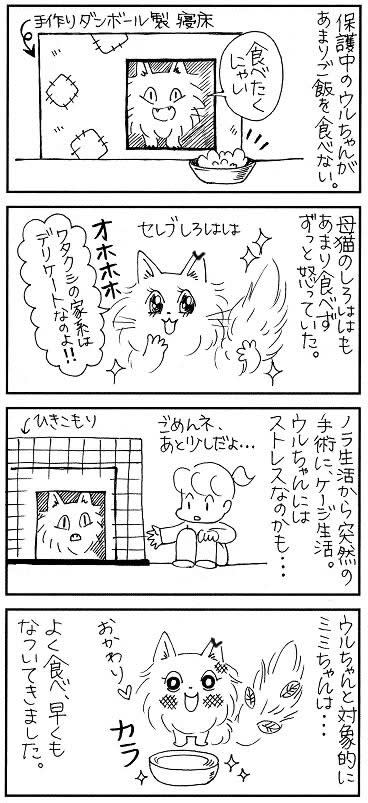 保護中のウルちゃんが
あまりご飯を食べない。
手作りダンボール製 寝床
食べたく
にゃい
母猫のしろははも
あまり食べず
ずっと怒っていた。
セレブしろはは
オホホホ
ワタクシの家系は
デリケートなのよ!!
ノラ生活から突然の
手術に、ケージ生活。
ウルちゃんには
ストレスなのかも・・・
ごめんネ、
あと少しだよ・・・
ひきこもり
ウルちゃんと対象的に
ミミちゃんは・・・
おかわり♡
カラ
よく食べ、早くも
なついてきました。